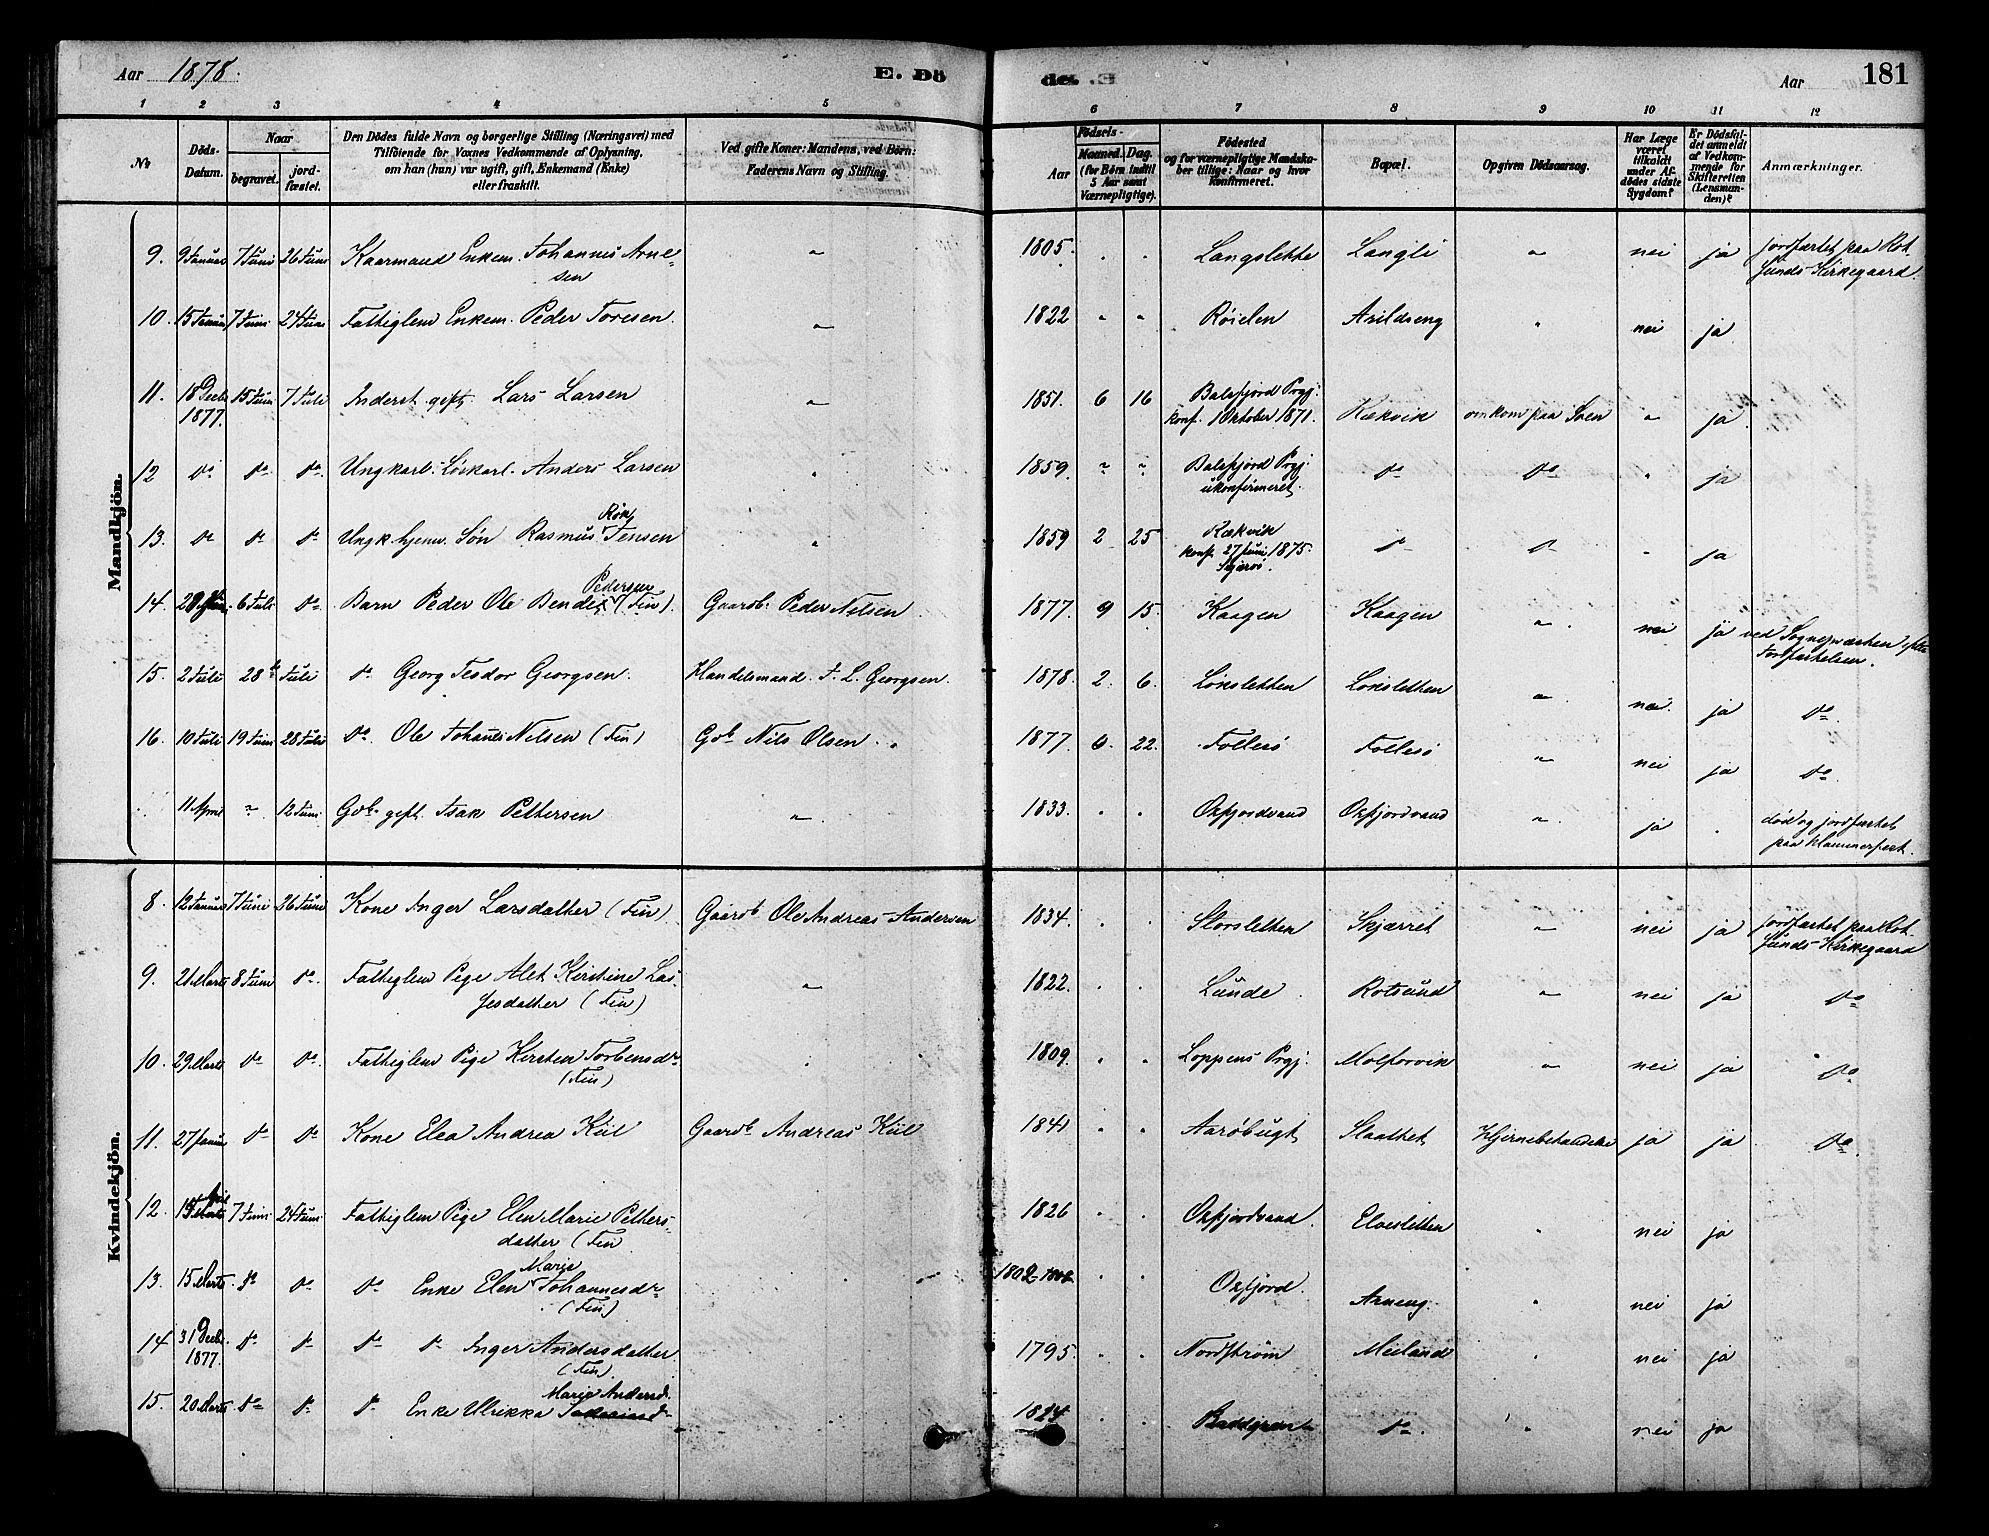 Aar 1878.
E. Dö
de. E
Aar
181
1 2 3 4 5 6 7 8 9 10 11 12
No
Döds-Datum.
Naar
begravet.
jord-fæstet.
Den Dödes fulde Navn og borgerlige Stilling (Næringsvei) med
Tilföiende for Voxnes Vedkommende af Oplysning,
om han (hun) var ugift, gift, Enkemand (Enke)
eller fraskilt.
Ved gifte Koner: Mandens, ved Börn:
Faderens Navn og Stilling.
Födsels-
Aar
Maaned. Dag.
(for Börn indtil
5 Aar samt
Værnepligtige).
Födested
og for værnepligtige Mandska-
ber tillige: Naar og hvor
konfirmeret.
Bopæl.
Opgiven Dödsaarsag.
Har Læge
været
tilkaldt
under Af-
dödes sidste
Sygdom?
Er Dödsfal-
det anmeldt
af Vedkom-
mende for
Skifteretten
(Lensman-
den)?
Anmærkninger.
Mandkjön.
9. 9 Januar 7 Juni 26 Juni Kaarmand Enkem. Johannes Arnesen " 1805. . . Langslette Langli " nei ja jordfæstet paa Rot
sunds Kirkegaard.
10. 15 Januar 7 Juni 24 Juni Fattiglem Enkem. Peder Toresen. " 1822 " " Röielen Avildseng " nei ja
11. 18 Decbr 1877. 15 Juni 7 Juli Inderst gift. Lars Larsen " 1851. 6 16 Balsfjord Prgj: konf. 1 Oktober 1871. Rækvik omkom paa Söen " ja
12 do do do Ungkarl. Löskarl. Anders Larsen " 1859. " " Balsfjord Prgj: ukonfirmeret. do do " ja
13. do do do Ungk. hjem. Sön Rasmus Rök Jensen " 1859 2 25 Rækvik konf. 27 Juni 1875. Skjervö. do do " ja
14. 6 Juli do Barn Peder Ole Pedersen (Fin). Gaardb. Peder Nilsen 1877. 9 15. Kaagen Kaagen " nei ja ved
Jordfæstelsen.
15. 2 Juli 28de Juli do Georg Tesdor Georgsen. Handelsmand. F. L. Georgsen. 1878. 2. 6. Löksletten Löksletten " nei. ja do
16. 10 Juli 19 Juni 28 Juli do Ole Johans Nilsen (Fin) Gbr. Nils Olsen. 1877. 6. 22. Follesö Follesö " nei ja do
11 April " 12 Juni. Gbr. gift. Isak Pettersen " 1833. . . Oxfjordvand Oxfjordvand " ja . död og jordfæstet
paa Hammerfest.
Kvindekjön.
8. 12 Januar 7 Juni 26 Juni Kone Inger Larsdatter (Fin). Gaardb. Ole Andreas Andersen 1834. . . Storsletten Skjærret " nei ja jordfæstet paa Rot-
sunds Kirkegaard
9. 21 Marts 8 Juni do Fattiglem Pige Alet Kirstine Las-
sesdatter (Fin) " 1822. . . Lunde Rotsund " nei ja do
10. 29 Marts do do. Fattiglem Pige Kirsten Torbensdr
(Fin) 1809. . . Loppens Prgj. " nei ja do
11. 27 Januar do do Kone Elea Andrea Kiil Gaardb. Andreas Kiil 1841 . . Aaröbugt Staalhet Hjernebetændelse ja ja do
12. 7 Juni 24 Juni Fattiglem Pige Elen Marie Petters-
datter (Fin 1826 . . Oxfjordvand. Elvesletten nei ja
13. 15 Marts. do do do Enke Elen Marie Johannesdr
(Fin) 1802 . . Oxfjord. Arneng. " nei ja
14 31 Decbr. 1877. do do do do Inger Andersdatter
(Fin) 1795. . . Nordström Meiland nei ja
15. 20 Marts do do do Enke Ulrikka Marie Andersd. 1824. . . do. nei ja